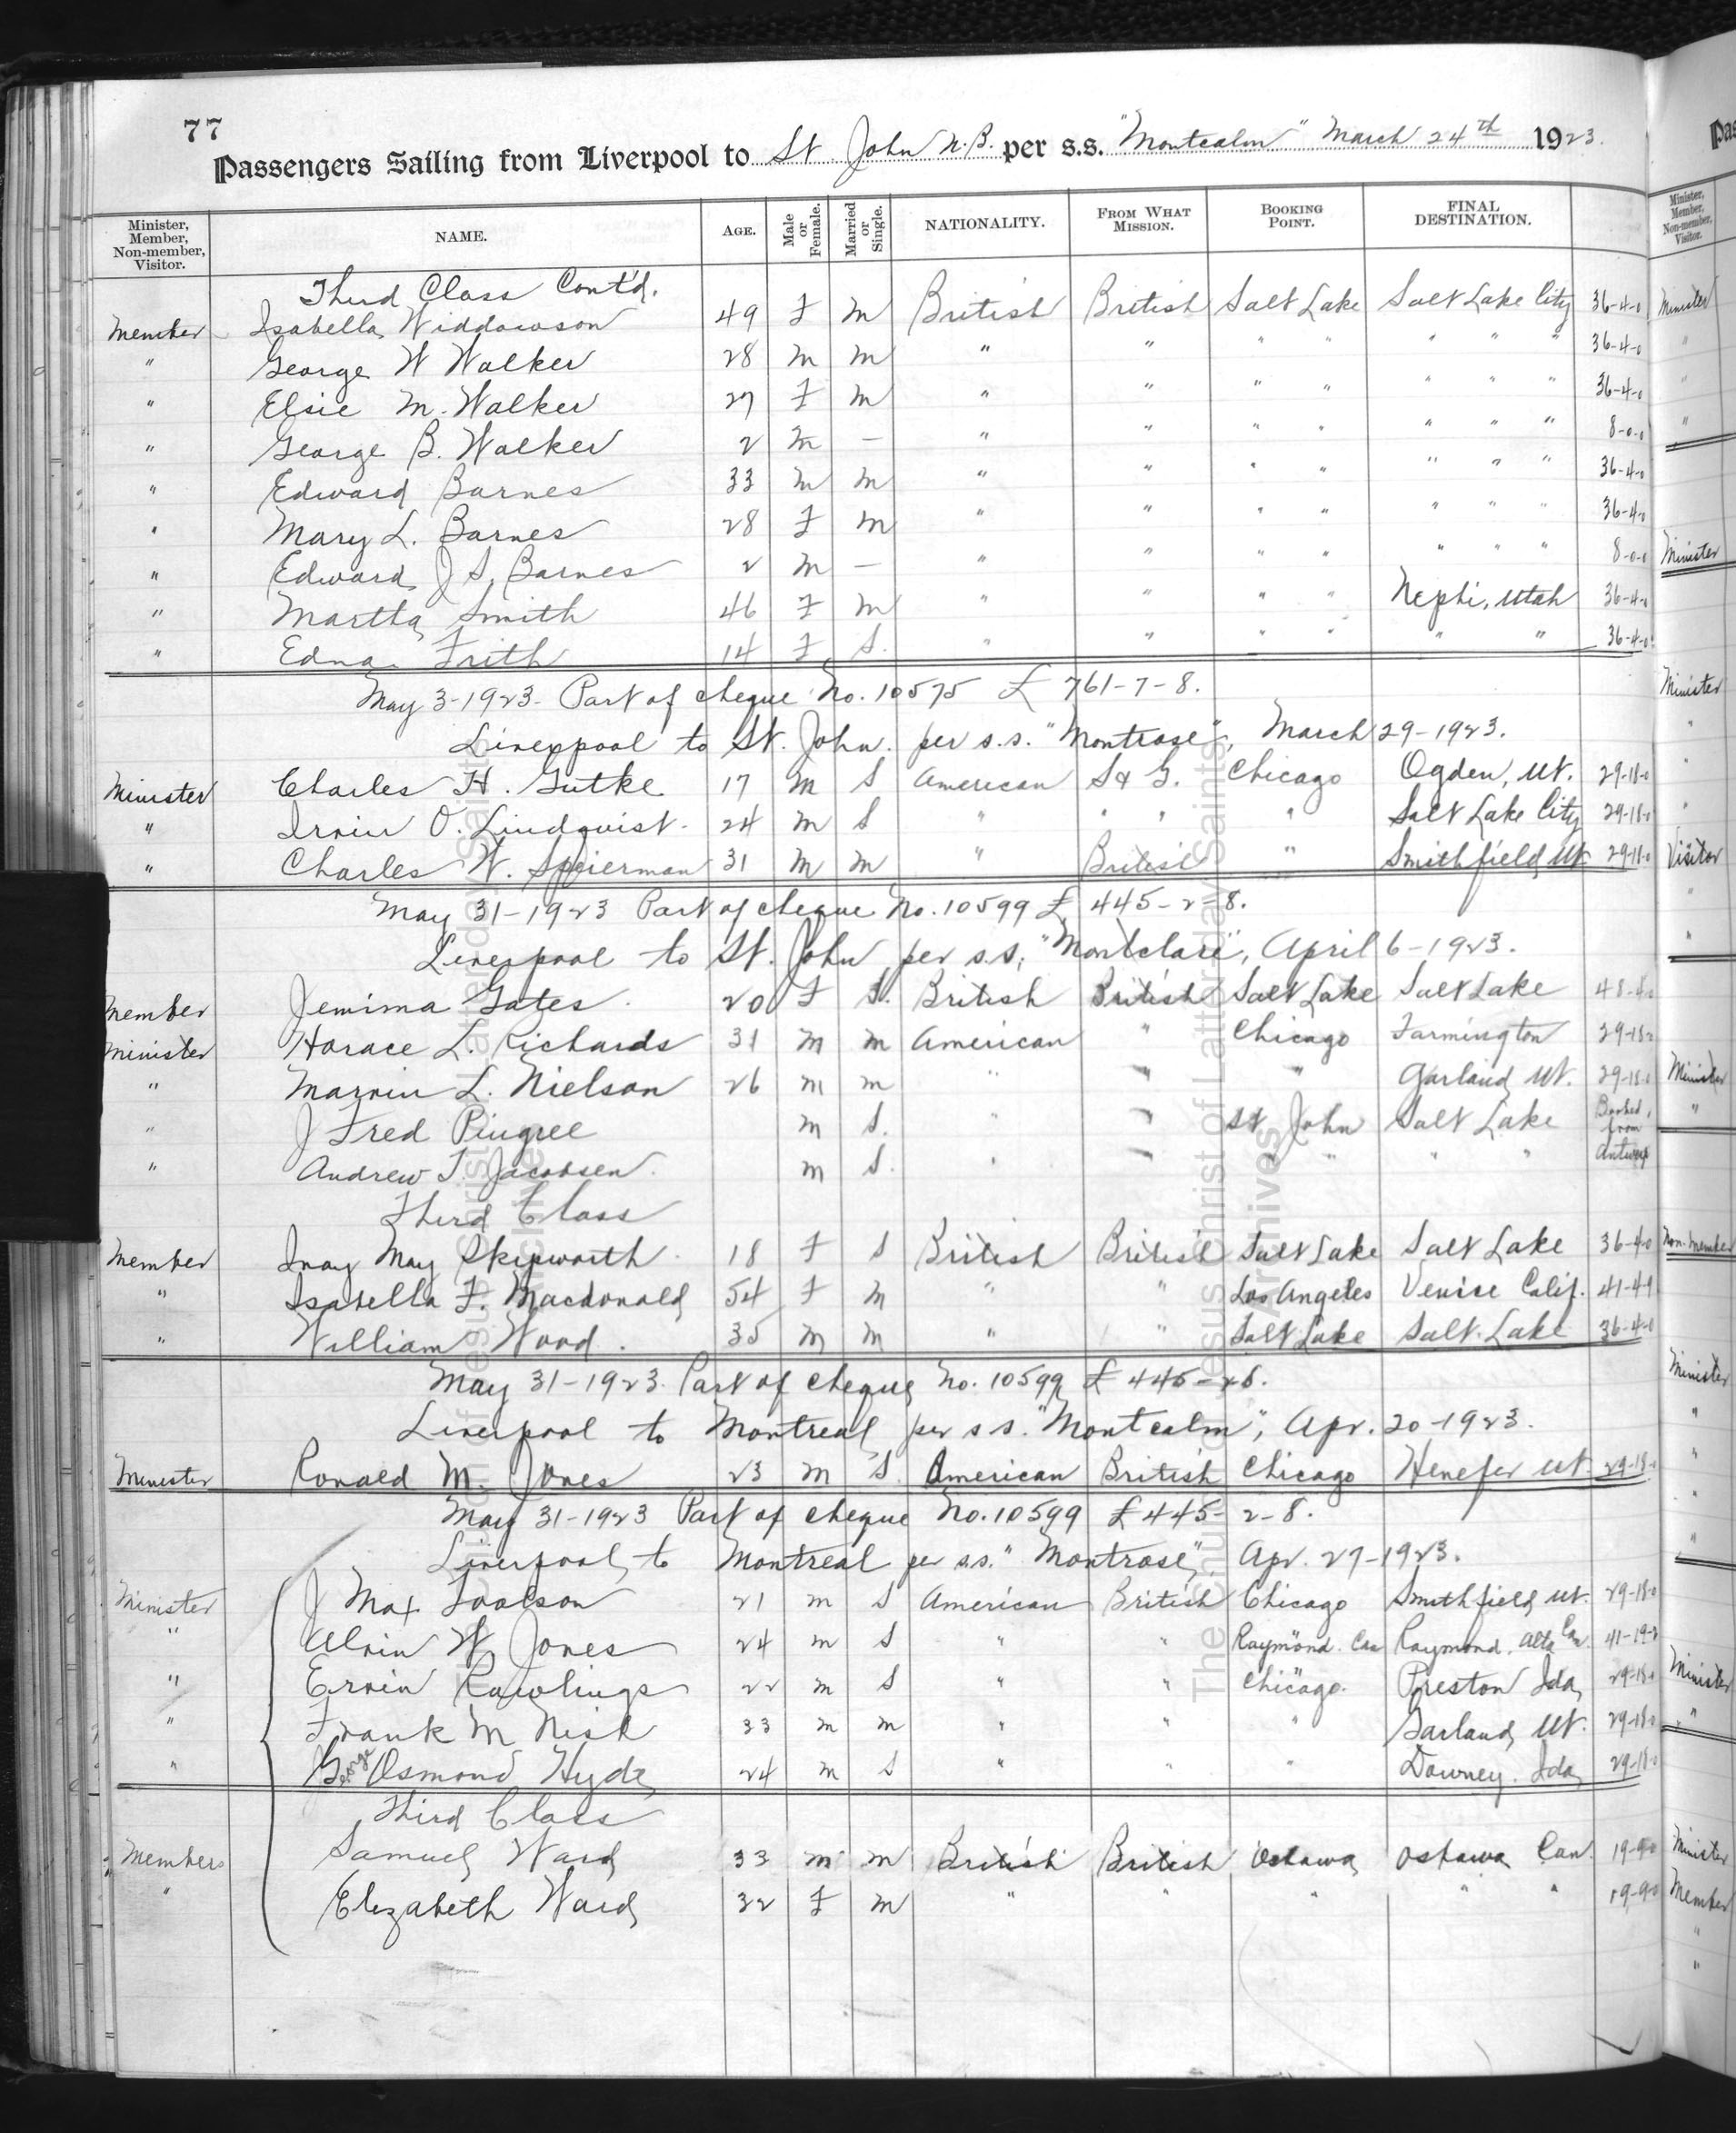 77
Passengers Sailing from Liverpool to St. John N.B. per s.s. "Montcalm" March 24th 1923.
Minister, Member, Non-member, Visitor. NAME. AGE. Male or Female. Married or Single. NATIONALITY. FROM WHAT MISSION. BOOKING POINT. FINAL DESTINATION.
Third Class Cont'd.
Member Isabella Widdowson 49 F M British British Salt Lake Salt Lake City 36-4-0
" George W Walker 28 M M " " " " " " " 36-4-0
" Elsie M. Walker 27 F M " " " " " " " 36-4-0
" George B. Walker 2 M — " " " " " " " 8-0-0
" Edward Barnes 33 M M " " " " " " " 36-4-0
" Mary L. Barnes 28 F M " " " " " " " 36-4-0
" Edward J S. Barnes 2 M — " " " " " " " 8-0-0
" Martha Smith 46 F M " " " " Nephi, Utah 36-4-0
" Edna Frith 14 F S. " " " " " " 36-4-0
May 3-1923. Part of cheque No. 10575 £ 761-7-8.
Liverpool to St. John. per s.s. "Montrose", March 29-1923.
Minister Charles H. Gutke 17 M S American S & G. Chicago Ogden, Ut. 29-18-0
" Irvin O. Lindquist. 24 M S " " " " Salt Lake City 29-18-0
" Charles W. Speierman 31 M M " British " Smithfield Ut 29-18-0
May 31-1923 Part of cheque No. 10599 £ 445-2-8.
Liverpool to St. John per s.s. "Montclare", April 6-1923.
Member Jemima Gates. 20 F S. British British Salt Lake Salt Lake 48-4-0
Minister Horace L. Richards 31 M M American " Chicago Farmington 29-18-0
" Marvin L. Nielson 26 M M " " " Garland Ut. 29-18-0
" J Fred Pingree M S. " " St John Salt Lake Booked from Antwerp
" Andrew T. Jacobsen. M S. " " " " " "
Third Class
Member May Skipworth. 18 F S British British Salt Lake Salt Lake 36-4-0
" Isabella F. Macdonald 54 F M " " Los Angeles Venice Calif. 41-4-9
" William Wood. 35 M M " " Salt Lake Salt Lake 36-4-0
May 31-1923. Part of cheque No. 10599 £ 445-
Liverpool to Montreal per s.s. "Montcalm", Apr. 20-1923.
Minister Ronald M. Jones 23 M S. American British Chicago Henefer Ut 29-18-0
May 31-1923 Part of cheque No. 10599 £445-2-8.
Liverpool to Montreal per s.s. "Montrose", Apr. 27-1923.
Minister J Max Toolson 21 M S American British Chicago Smithfield Ut. 29-18-0
" Alvin W. Jones 24 M S " " Raymond. Can Raymond. Alta Can. 41-19-2
" Ervin Rawlings 22 M S " " Chicago. Preston Ida. 29-18-0
" Frank M Nish 33 M M " " " Garland, Ut. 29-18-0
" George Osmond Hyde 24 M S " " " Downey. Ida 29-18-0
Third Class
Members Samuel Ward 33 M M British British Oshawa Oshawa Can. 19-9-0
" Elizabeth Ward 32 F M " " " " " 19-9-0